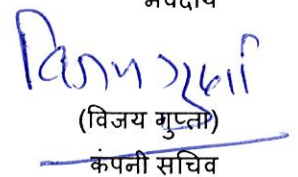 भवदीय
विजय गुप्ता
(विजय गुप्ता)
कंपनी सचिव